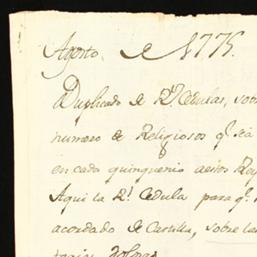 Agosto. de 1775.
Duplicado de Rs. Cedulas, sobre
numero de Religiosos qe. sea
en cada quinquenio aestos Rey
Aqui la Rl. Cedula para qe.
acordado de Castilla, sobre las